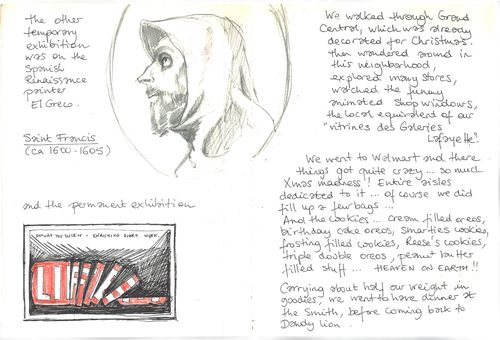 The other
temporary
exhibition
was on the
Spanish
Renaissance
painter
El Greco.
Saint Francis
(ca 1600-1605)
and the permanent exhibition
LIFE
We walked through Grand
Central, which was already
decorated for Christmas.
then wandered around in
this neighborhood,
explored many stores,
watched the funny
animated shop windows,
the local equivalent of our
"vitrines des Galeries
Lafayette".
We went to Walmart and there
things got quite crazy... so much
Xmas madness! Entire aisles
dedicated to it... of course we did
fill up a few bags...
And the cookies... cream filled oreos,
birthday cake oreos, Smarties cookies,
frosting filled cookies, Reese's cookies,
triple double oreos, peanut butter
filled stuff... HEAVEN ON EARTH!!
Carrying about half our weight in
goodies, we went to have dinner at
the Smith, before coming back to
Dandy lion.